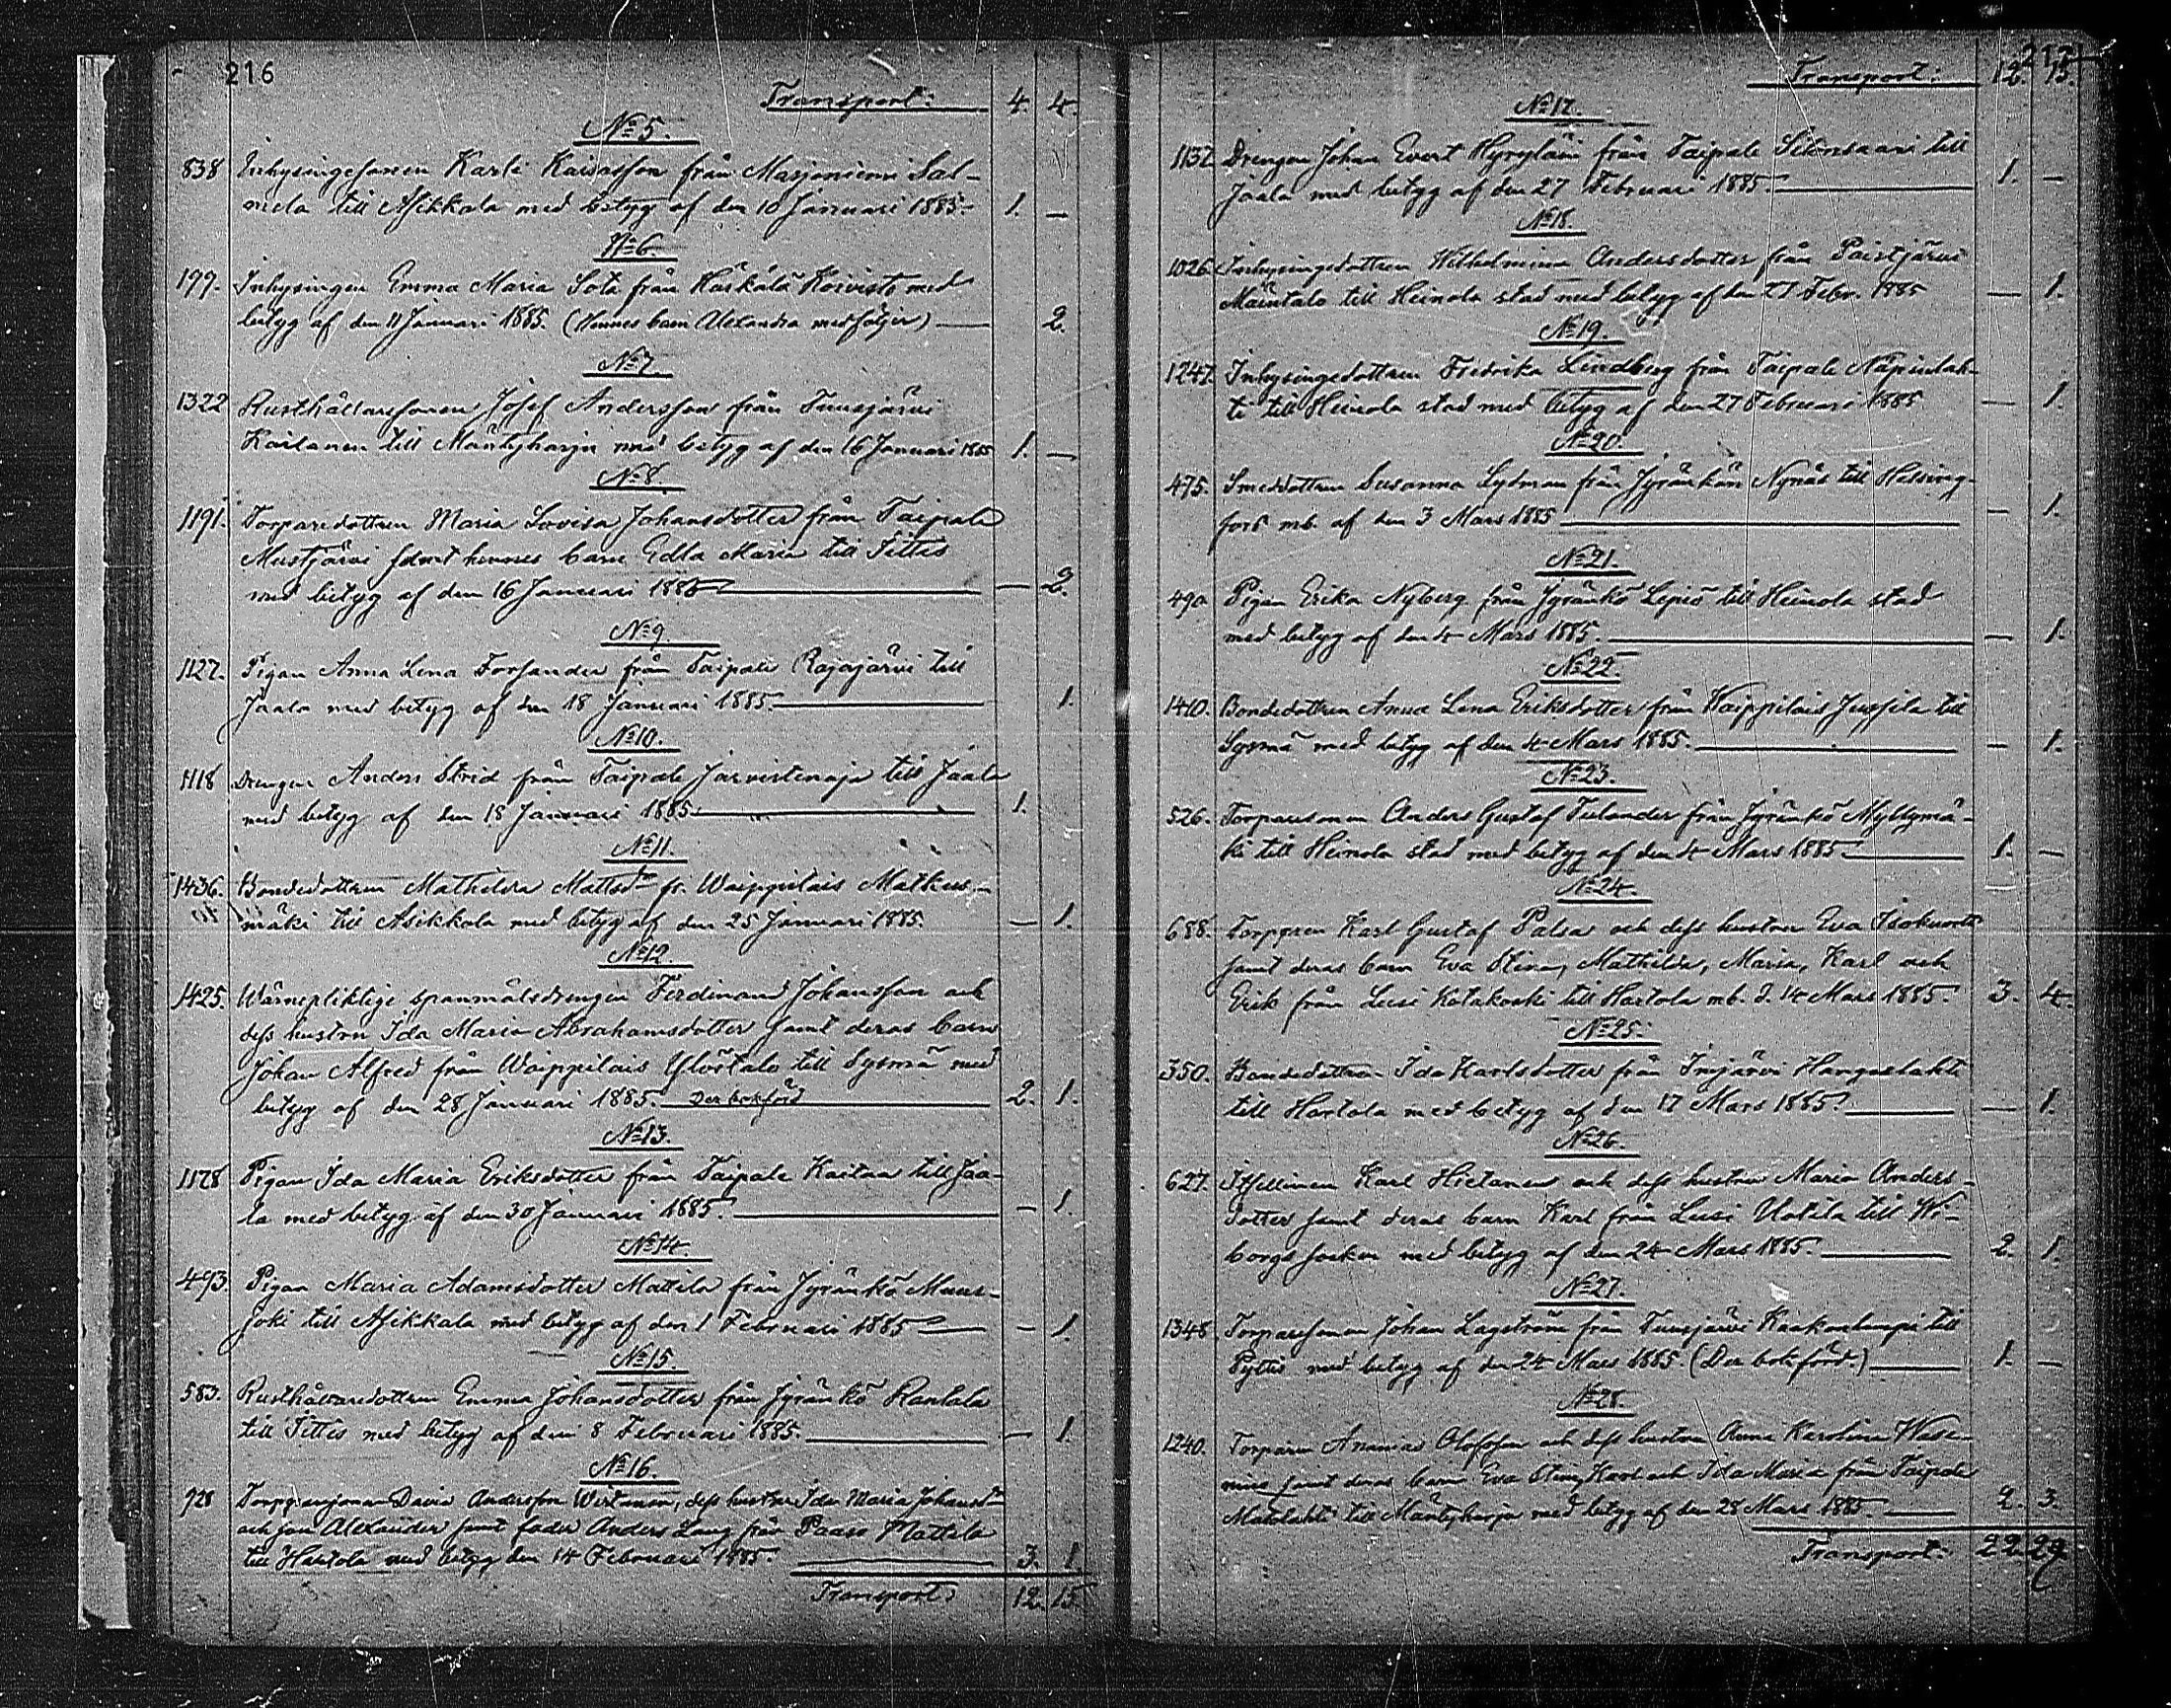 216
Transport: 4. 4.
No 5.
838 Inhysingesonen Karl Kaisasson från Marjoniemi Sal-
mela till Asikkala med betyg af den 10 Januari 1885. 1. —
No 6.
199. Inhysingen Emma Maria Sota från Härkälä Koivisto med
betyg af den 11 Januari 1885. (Hennes barn Alexandra medföljer) — 2.
No 7.
1322 Rusthållaresonen Josef Andersson från Tuusjärvi
Kaitanen till Mäntyharju med betyg af den 16 Januari 1885 1. —
No 8.
1191. Torparedottren Maria Lovisa Johansdotter från Taipale
Mustjärvi samt hennes barn Edla Maria till Sittis
med betyg af den 16 Januari 1885 — 2.
No 9.
1127. Pigan Anna Lena Forsander från Taipale Rajajärvi till
Jaala med betyg af den 18 Januari 1885. 1.
No 10.
1118 Drengen Anders Strid från Taipale till Jaala
med betyg af den 18 Januari 1885. 1.
No 11.
1436. Bondedottren Mathilda Mattsdr fr. Waippilais Matkus-
mäki till Asikkala med betyg af den 25 Januari 1885. — 1.
No 12.
1425. Wärnepliktige spanmålsdrengen Ferdinand Johansson och
dess hustru Ida Maria Abrahamsdotter samt deras barn
Johan Alfred från Waippilais Ylöstalo till Sysmä med
betyg af den 28 Januari 1885. 2. 1.
No 13.
1178 Pigan Ida Maria Eriksdotter från Taipale Kaitaa till Jaa-
la med betyg af den 30 Januari 1885. — 1.
No 14.
493. Pigan Maria Adamsdotter Mattila från Jyränkö Muus-
joki till Asikkala med betyg af den 1 Februari 1885 — 1.
No 15.
583. Rusthållaredottren Emma Johansdotter från Jyränkö Rantala
till Sittis med betyg af den 8 Februari 1885. — 1.
No 16.
928 Torparesonen David Andersson Wirtanen, dess hustru Ida Maria Johansdr
och son Alexander samt fader Anders Lang från Paaso Mattila
till Hartola med betyg den 14 Februari 1885. 3. 1
Transport: 12. 15.
217
Transport: 12. 15.
No 17.
1132 Drengen Johan Evert Hyryläin från Taipale Siionsaari till
Jaala med betyg af den 27 Februari 1885. 1. —
No 18.
1026 Inhysingedottren Wilhelmina Andersdotter från Paistjärvi
Mäntalo till Heinola stad med betyg af den 27 Febr. 1885 — 1.
No 19.
1247. Inhysingedottren Fredrika Lindberg från Taipale Näpinlah-
ti till Heinola stad med betyg af den 27 Februari 1885 — 1.
No 20.
475. Smeddottren Susanna Lydman från Jyränkän Nynäs till Helsing-
fors mb. af den 3 Mars 1885 — 1.
No 21.
490 Pigan Erika Nyberg från Jyränkö Lepiö till Heinola stad
med betyg af den 4 Mars 1885. — 1.
No 22.
1410. Bondedottren Anna Lena Eriksdotter från Waippilais Jussila till
Sysmä med betyg af den 4 Mars 1885. — 1.
No 23.
526. Torparesonen Anders Gustaf Tulander från Jyränkö Myllymä-
ki till Heinola stad med betyg af den 4 Mars 1885. 1. —
No 24.
688. Torparen Karl Gustaf Palsa och dess hustru Eva Isokuortti
samt deras barn Eva Stina, Mathilda, Maria, Karl och
Erik från Lusi Katakoski till Hartola mb. d. 14 Mars 1885. 3. 4.
No 25.
350. Bondedottren Ida Karlsdotter från Imjärvi Hangaslahti
till Hartola med betyg af den 17 Mars 1885. — 1.
No 26.
627. Itsellinen Karl Hietanen och dess hustru Maria Anders-
dotter samt deras barn Karl från Lusi Uotila till Wi-
borgs socken med betyg af den 24 Mars 1885. 2. 1.
No 27.
1348 Torparesonen Johan Lagström från Tuusjärvi Kaakonlampi till
Pyttis med betyg af den 24 Mars 1885. 1. —
No 28.
1240. Torparen Ananias Olofsson och dess hustru Anna Karolina Wase-
nius samt deras barn Eva Stina, Karl och Ida Maria från Taipale
Matolahti till Mäntyharju med betyg af den 28 Mars 1885. 2. 3.
Transport: 22. 29